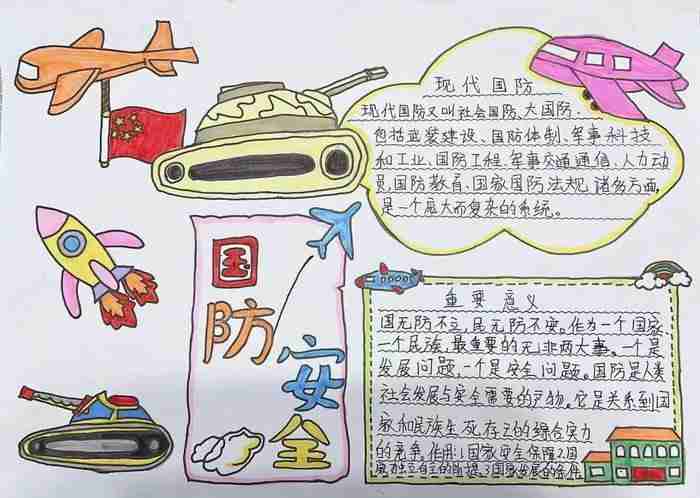 现代国防
现代国防又叫社会国防、大国防.
包括武装建设、国防体制、军事科技
和工业、国防工程、军事交通通信、人力动
员,国防教育、国家国防法规,诸多方面.
是一个庞大而复杂的系统。
国
防
安
全
重要意义
国无防不立,民无防不安。作为一个国家
一个民族,最重要的无非两大事。一个是
发展问题,一个是安全问题。国防是人类
社会发展与安全需要的产物。它是关系到国
家和民族生死存亡的综合实力
的竞争。作用:1国家安全保障2.国
家独立自主的前提.3国家发展的条件